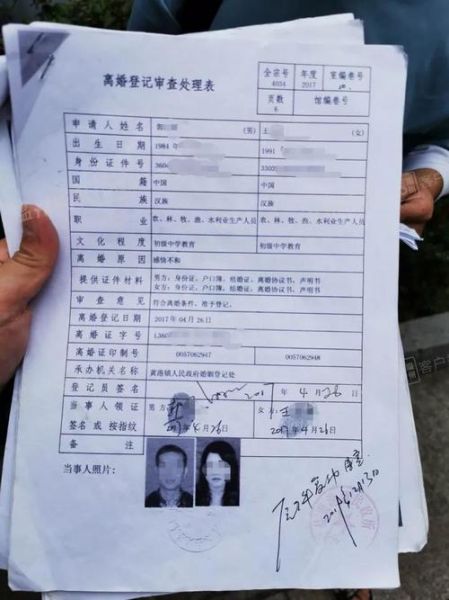 离婚登记审查处理表
全宗号 年度 室编卷号
4034 2017
页数 馆编卷号
6
申请人姓名 (男) (女)
出生日期 1984年 1991
身份证件号 3604 3302
国籍 中国 中国
民族 汉族 汉族
职业 农、林、牧、渔、水利业生产人员 农、林、牧、渔、水利业生产人员
文化程度 初级中学教育 初级中学教育
离婚原因 感情不和
提供证件材料 男方:身份证、户口簿、结婚证、离婚协议书、声明书
女方:身份证、户口簿、结婚证、离婚协议书、声明书
审查意见 符合离婚条件,准予登记。
离婚登记日期 2017年04月26日
离婚证字号 L360
离婚证印制号 0057062947 0057062948
承办机关名称 黄港镇人民政府婚姻登记处
登记员签名 2017年4月26日
当事人领证 男方 女方 王
签名或按指纹 2017年4月26日 2017年4月26日
备注
当事人照片:
客户